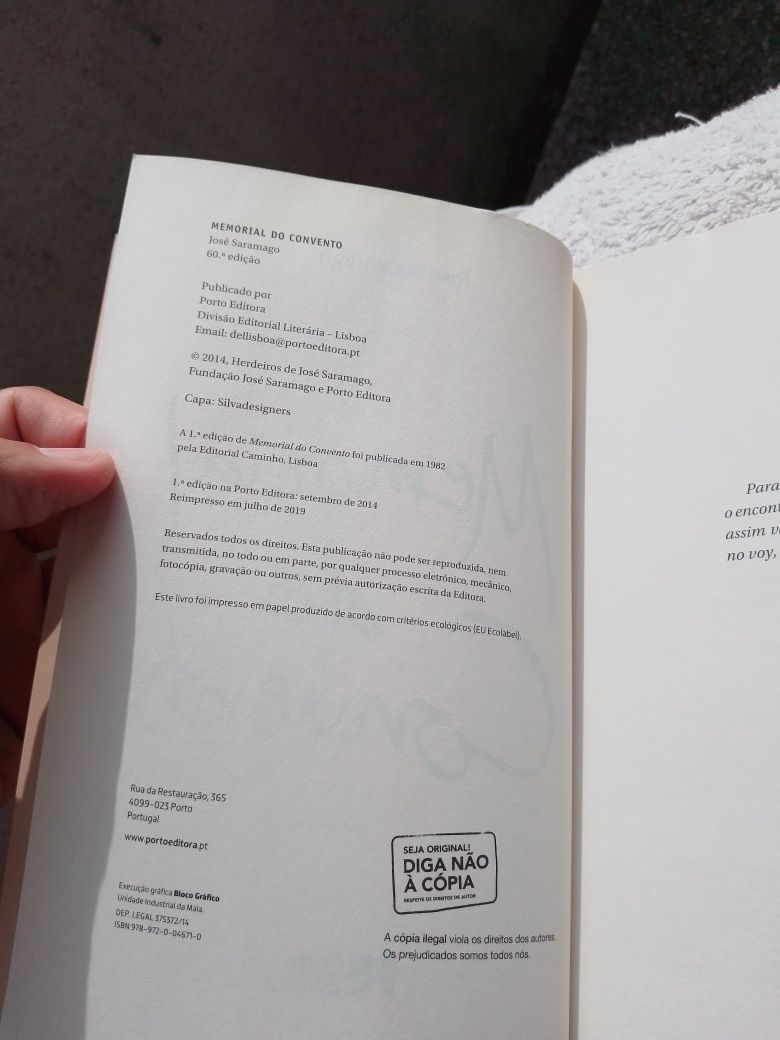 MEMORIAL DO CONVENTO
José Saramago
60.ª edição
Publicado por
Porto Editora
Divisão Editorial Literária – Lisboa
Email: dellisboa@portoeditora.pt
© 2014, Herdeiros de José Saramago,
Fundação José Saramago e Porto Editora
Capa: Silvadesigners
A 1.ª edição de Memorial do Convento foi publicada em 1982
pela Editorial Caminho, Lisboa
1.ª edição na Porto Editora: setembro de 2014
Reimpresso em julho de 2019
Reservados todos os direitos. Esta publicação não pode ser reproduzida, nem
transmitida, no todo ou em parte, por qualquer processo eletrónico, mecânico,
fotocópia, gravação ou outros, sem prévia autorização escrita da Editora.
Este livro foi impresso em papel produzido de acordo com critérios ecológicos (EU Ecolabel).
Rua da Restauração, 365
4099-023 Porto
Portugal
www.portoeditora.pt
Execução gráfica Bloco Gráfico
Unidade Industrial da Maia.
DEP. LEGAL 375372/14
ISBN 978-972-0-04671-0
SEJA ORIGINAL!
DIGA NÃO
À CÓPIA
RESPEITE OS DIREITOS DE AUTOR
A cópia ilegal viola os direitos dos autores.
Os prejudicados somos todos nós.
Para
o encont
assim v
no voy,